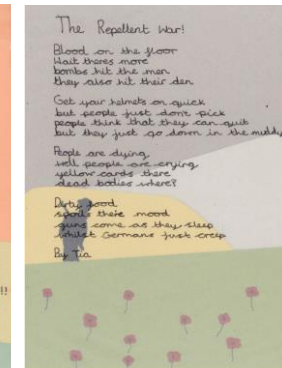 The Repellent War!
Blood on the floor
Wait theres more
bombs hit the men
they also hit their den
Get your helmets on quick
but people just don't pick
people think that they can quit
but they just go down in the muddy
People are dying
well people are crying
yellow cards there
dead bodies where?
Dirty food
spoils there mood
guns come as they sleep
whilst Germans just creep
By Tia
!!